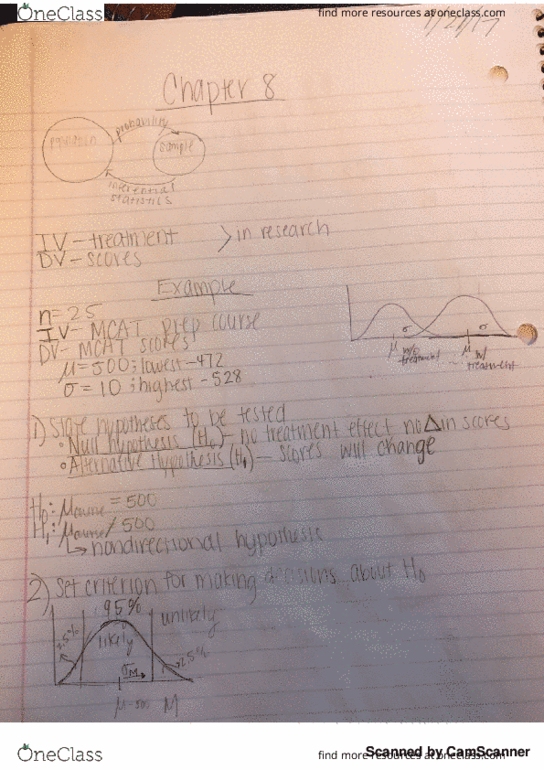 OneClass
find more resources at oneclass.com
Chapter 8
population
probability
sample
inferential
statistics
IV - treatment > in research
DV - scores
Example
n = 25
IV - MCAT Prep course
DV - MCAT scores
μ = 500 ; lowest - 472
σ = 10 ; highest - 528
σ σ
μ w/o treatment
μ w/ treatment
1) State hypotheses to be tested
• Null hypothesis (H₀) - no treatment effect no Δ in scores
• Alternative Hypothesis (H₁) - scores will change
H₀: μcourse = 500
H₁: μcourse ≠ 500
↳ nondirectional hypothesis
2) Set criterion for making decisions about H₀
95%
unlikely
2.5%
likely
2.5%
σM
μ = 500 M
OneClass
find more resources at oneclass.com
Scanned by CamScanner